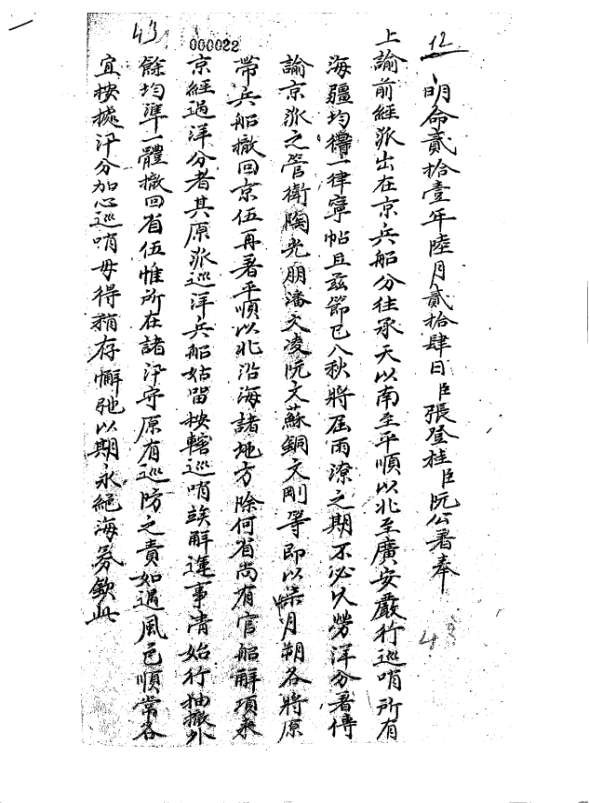 12
43
000022
明命貳拾壹年陸月貳拾肆日臣張登桂臣阮公著奉
上諭前經派出在京兵船分往承天以南至平順以北至廣安嚴行巡哨所有
海疆均得一律寧帖且茲節已入秋將屆雨潦之期不必久勞洋分著傳
諭京派之管衛陶光朋潘文凌阮文蘇銅文剛等即以柒月朔各將原
帶兵船撤回京伍再著平順以北沿海諸地方除何省尚有官船解項來
京經過洋分者其原派巡洋兵船姑留按轄巡哨竢解運事清始行抽撤外
餘均準一體撤回省伍惟所在諸汛守原有巡防之責如遇風色順常各
宜按據汛分加心巡哨毋得稍存懈弛以期永絕海氛欽此